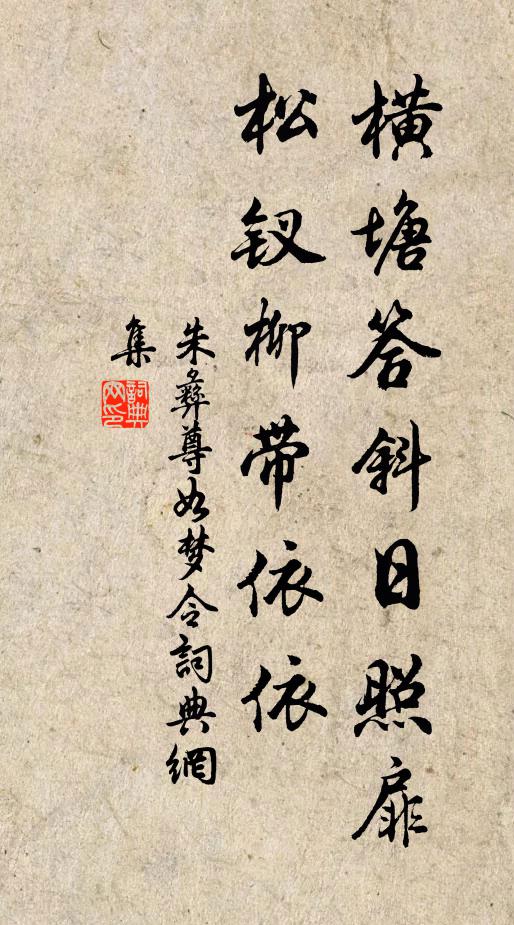 横塘答斜日照扉
松钗柳带依依
朱彝尊如梦令詞典網
集
詞典網印